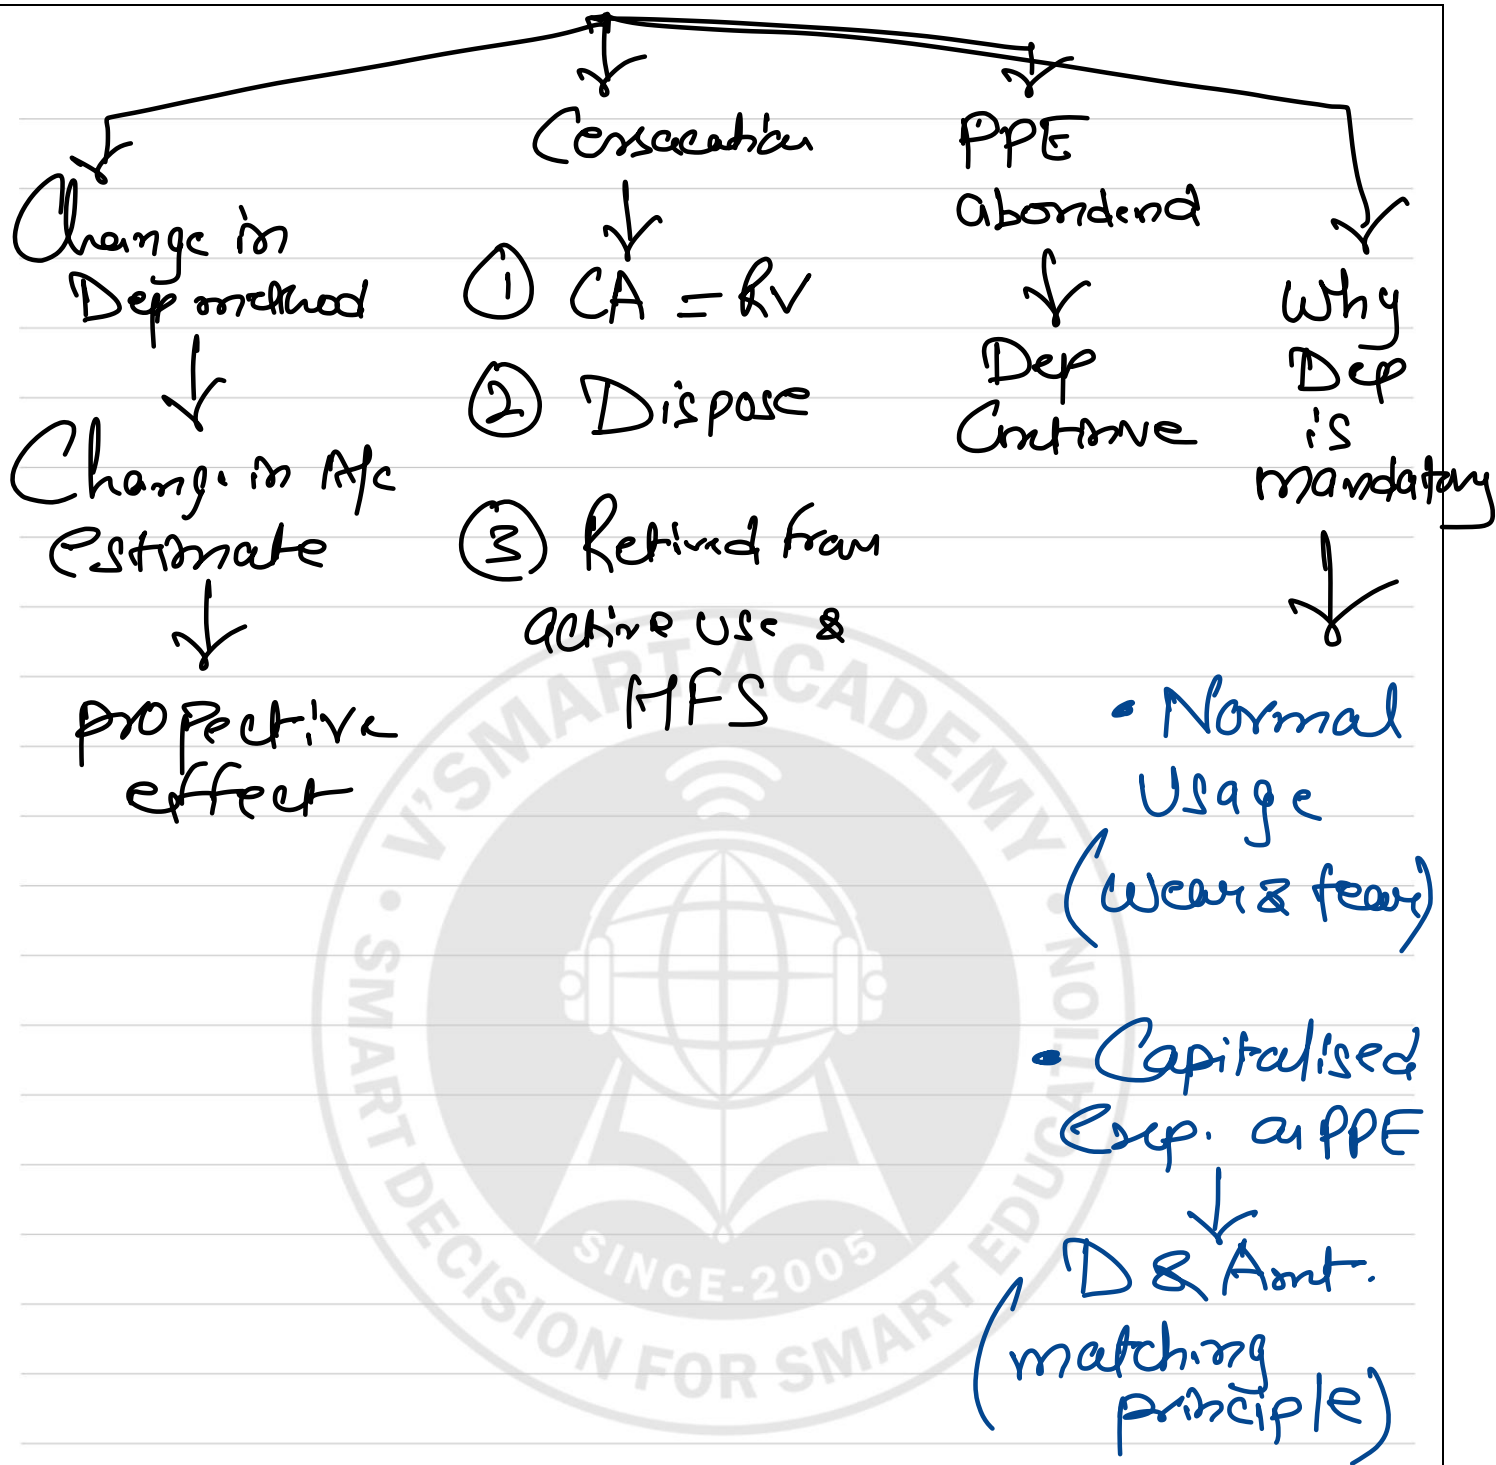 Change in
Dep method
Change in A/c
estimate
propective
effect
Cessacation
① CA = RV
② Dispose
③ Retired from
active use &
HFS
PPE
abondend
Dep
Continve
Why
Dep
is
mandatory
• Normal
Usage
(wear & tear)
• Capitalised
Exp. as PPE
D & Amt.
(matching
principle)
V'SMART ACADEMY
SMART DECISION FOR SMART EDUCATION
SINCE-2005